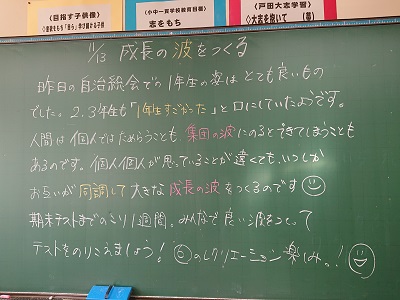 〈目指す子供像〉
小中一貫学校教育目標
志をもち
〈戸田大志学習〉
◇大志を抱いて
11/13 成長の波をつくる
昨日の自治総会での1年生の姿はとても良いもの
でした。2.3年生も「1年生すごかった」と口にしていたようです。
人間は個人ではためらうことも集団の波にのるとできてしまうことも
あるのです。個人個人が思っていることが違くても、いつしか
お互いが同調して大きな成長の波をつくるのです
期末テストまでのこり1週間。みんなで良い波をつくって
テストをのりこえましょう! ⑥のレクリエーション楽しみ。!